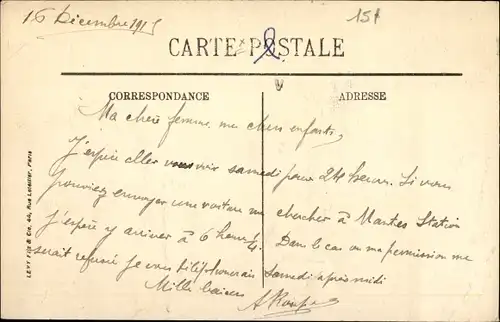 16 Décembre 1915
15f
CARTE POSTALE
CORRESPONDANCE
ADRESSE
LEVY Fils & Cie, 44, Rue Letellier, Paris
Ma chère femme, mes chers enfants,
J'espère aller vous voir samedi pour 24 heures. Si vous
pouviez envoyer une voiture me chercher à Mantes Station
J'espère y arriver à 6 heures 1/4. Dans le cas où ma permission me
serait refusée je vous téléphonerais samedi après midi
Mille baisers